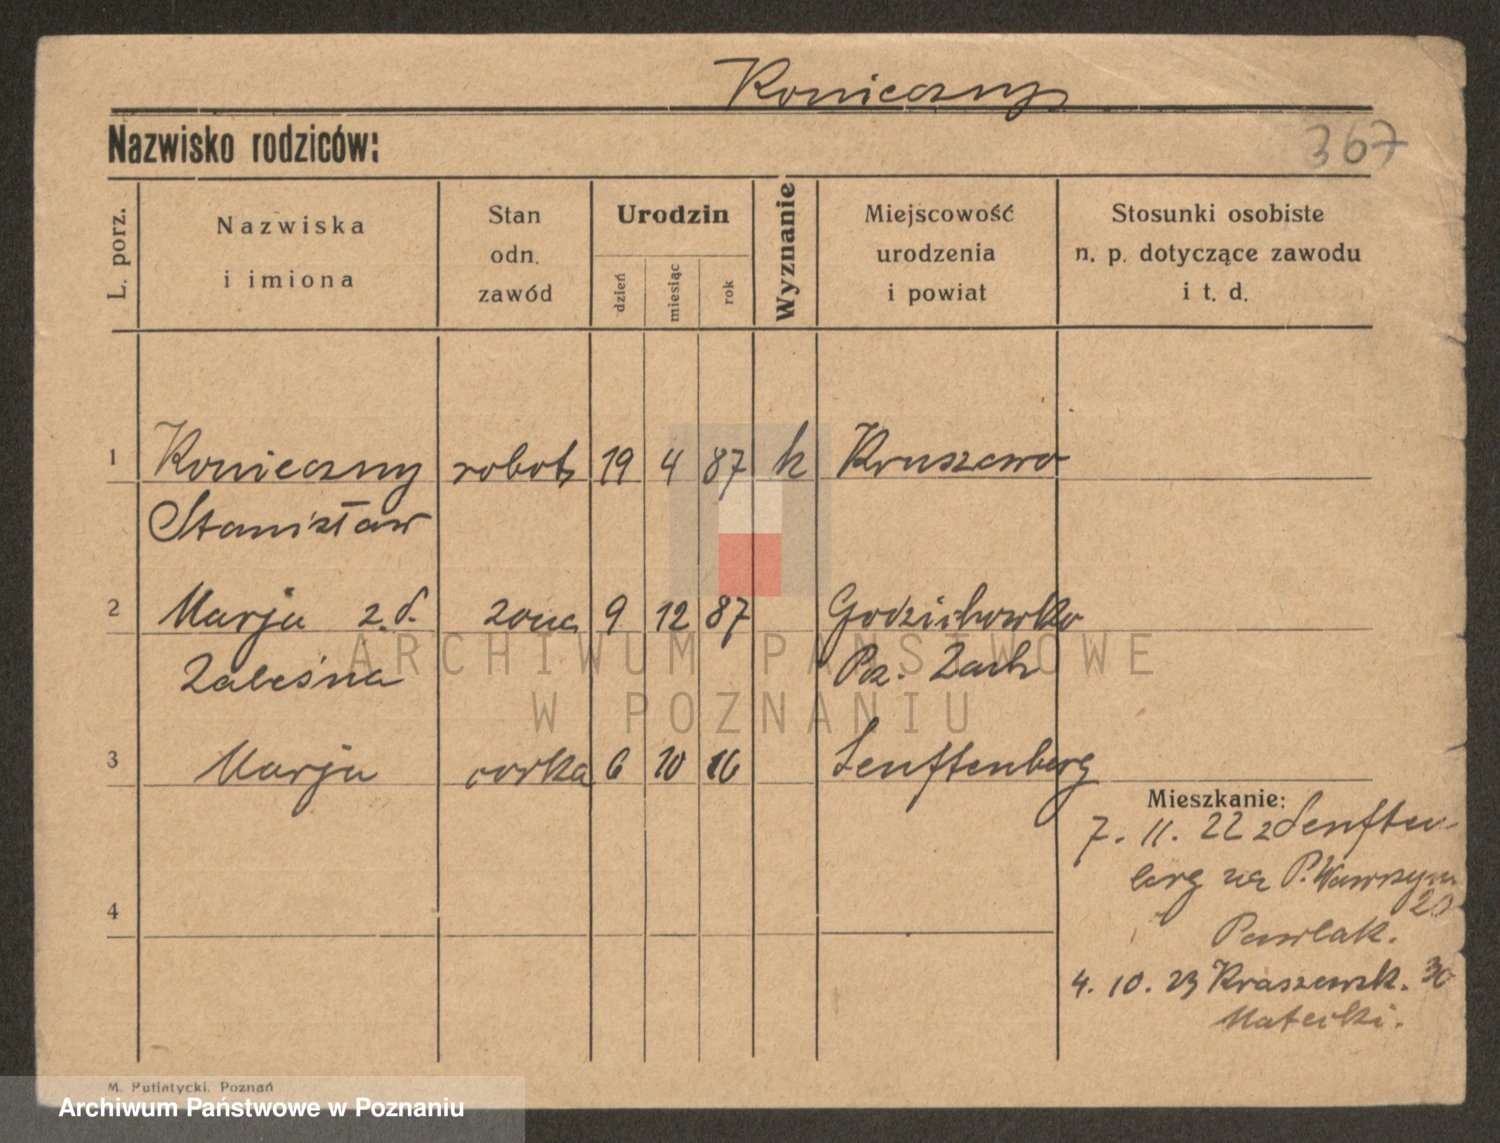 Konieczny
Nazwisko rodziców:
367
L. porz.
Nazwiska
i imiona
Stan
odn.
zawód
Urodzin
dzień
miesiąc
rok
Wyznanie
Miejscowość
urodzenia
i powiat
Stosunki osobiste
n. p. dotyczące zawodu
i t. d.
1 Konieczny robot 19 4 87 k Kruszewo
Stanisław
2 Marja z. d. zona 9 12 87
Poz. Zach
3 Marja corka 6 10 16 Senftenberg
Mieszkanie:
7. 11. 22 z Senften-
berg na P. Wawrzyn
20
4
Pawlak.
4. 10. 23 Kraszewsk. 30
Matecki.
ARCHIWUM PAŃSTWOWE
W POZNANIU
M. Putiatycki, Poznań
Archiwum Państwowe w Poznaniu